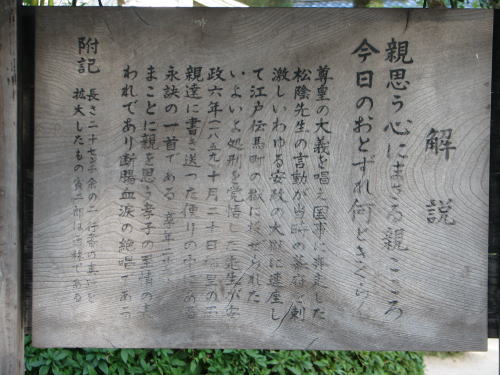 解説
親思う心にまさる親ごころ
今日のおとずれ何ときくらん
尊皇の大義を唱え国事に奔走した
松陰先生の言動が当時の幕府を刺
激しいわゆる安政の大獄に連座し
て江戸伝馬町の獄に投ぜられた
いよいよ処刑を覚悟した先生が安
政六年(一八五九)十月二十日郷里の両
親達に書き送った便りの中にある
永訣の一首である
まことに親を思う孝子の至情の
われであり断腸血涙の絶唱である
附記
長さ二十七
拡大したもの寅二郎は通称である